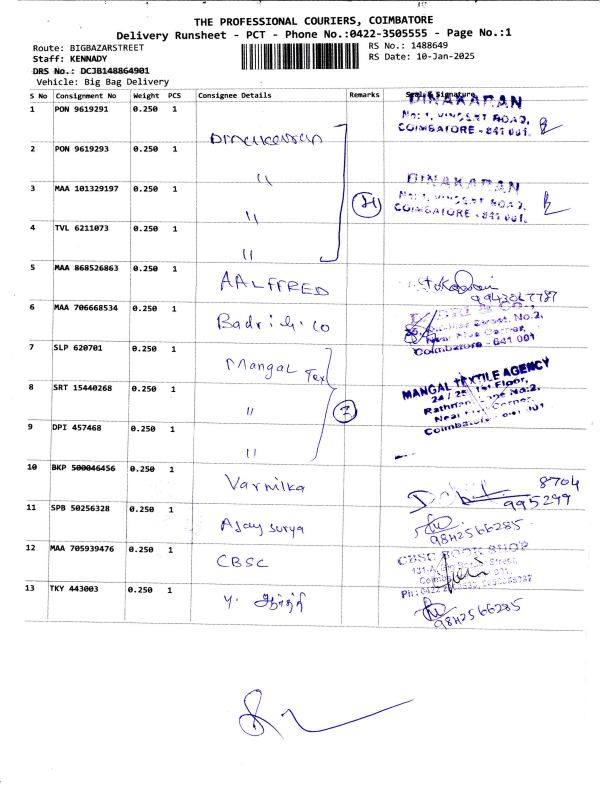 THE PROFESSIONAL COURIERS, COIMBATORE
Delivery Runsheet - PCT - Phone No.:0422-3505555 - Page No.:1
Route: BIGBAZARSTREET
RS No.: 1488649
Staff: KENNADY
RS Date: 10-Jan-2025
DRS No.: DCJB148864901
Vehicle: Big Bag Delivery
S No Consignment No Weight PCS Consignee Details Remarks Seal & Signature
1 PON 9619291 0.250 1 Dinakaran
DINAKARAN
No: 1, VINCENT ROAD,
COIMBATORE - 641 001.
2 PON 9619293 0.250 1 "
3 MAA 101329197 0.250 1 "
DINAKARAN
No: 1, VINCENT ROAD,
COIMBATORE - 641 001.
4 TVL 6211073 0.250 1 "
5 MAA 868526863 0.250 1 AALFFRED
6 MAA 706668534 0.250 1 Badri & co
Coimbatore - 641 001
7 SLP 620701 0.250 1 Mangal Tex
8 SRT 15440268 0.250 1 "
MANGAL TEXTILE AGENCY
24 / 25, 1st Floor,
9 DPI 457468 0.250 1 "
10 BKP 500046456 0.250 1 Varnika
8704
995299
11 SPB 50256328 0.250 1 Ajay surya
9842566285
12 MAA 705939476 0.250 1 CBSC
CBSC BOOK SHOP
13 TKY 443003 0.250 1
9842566285